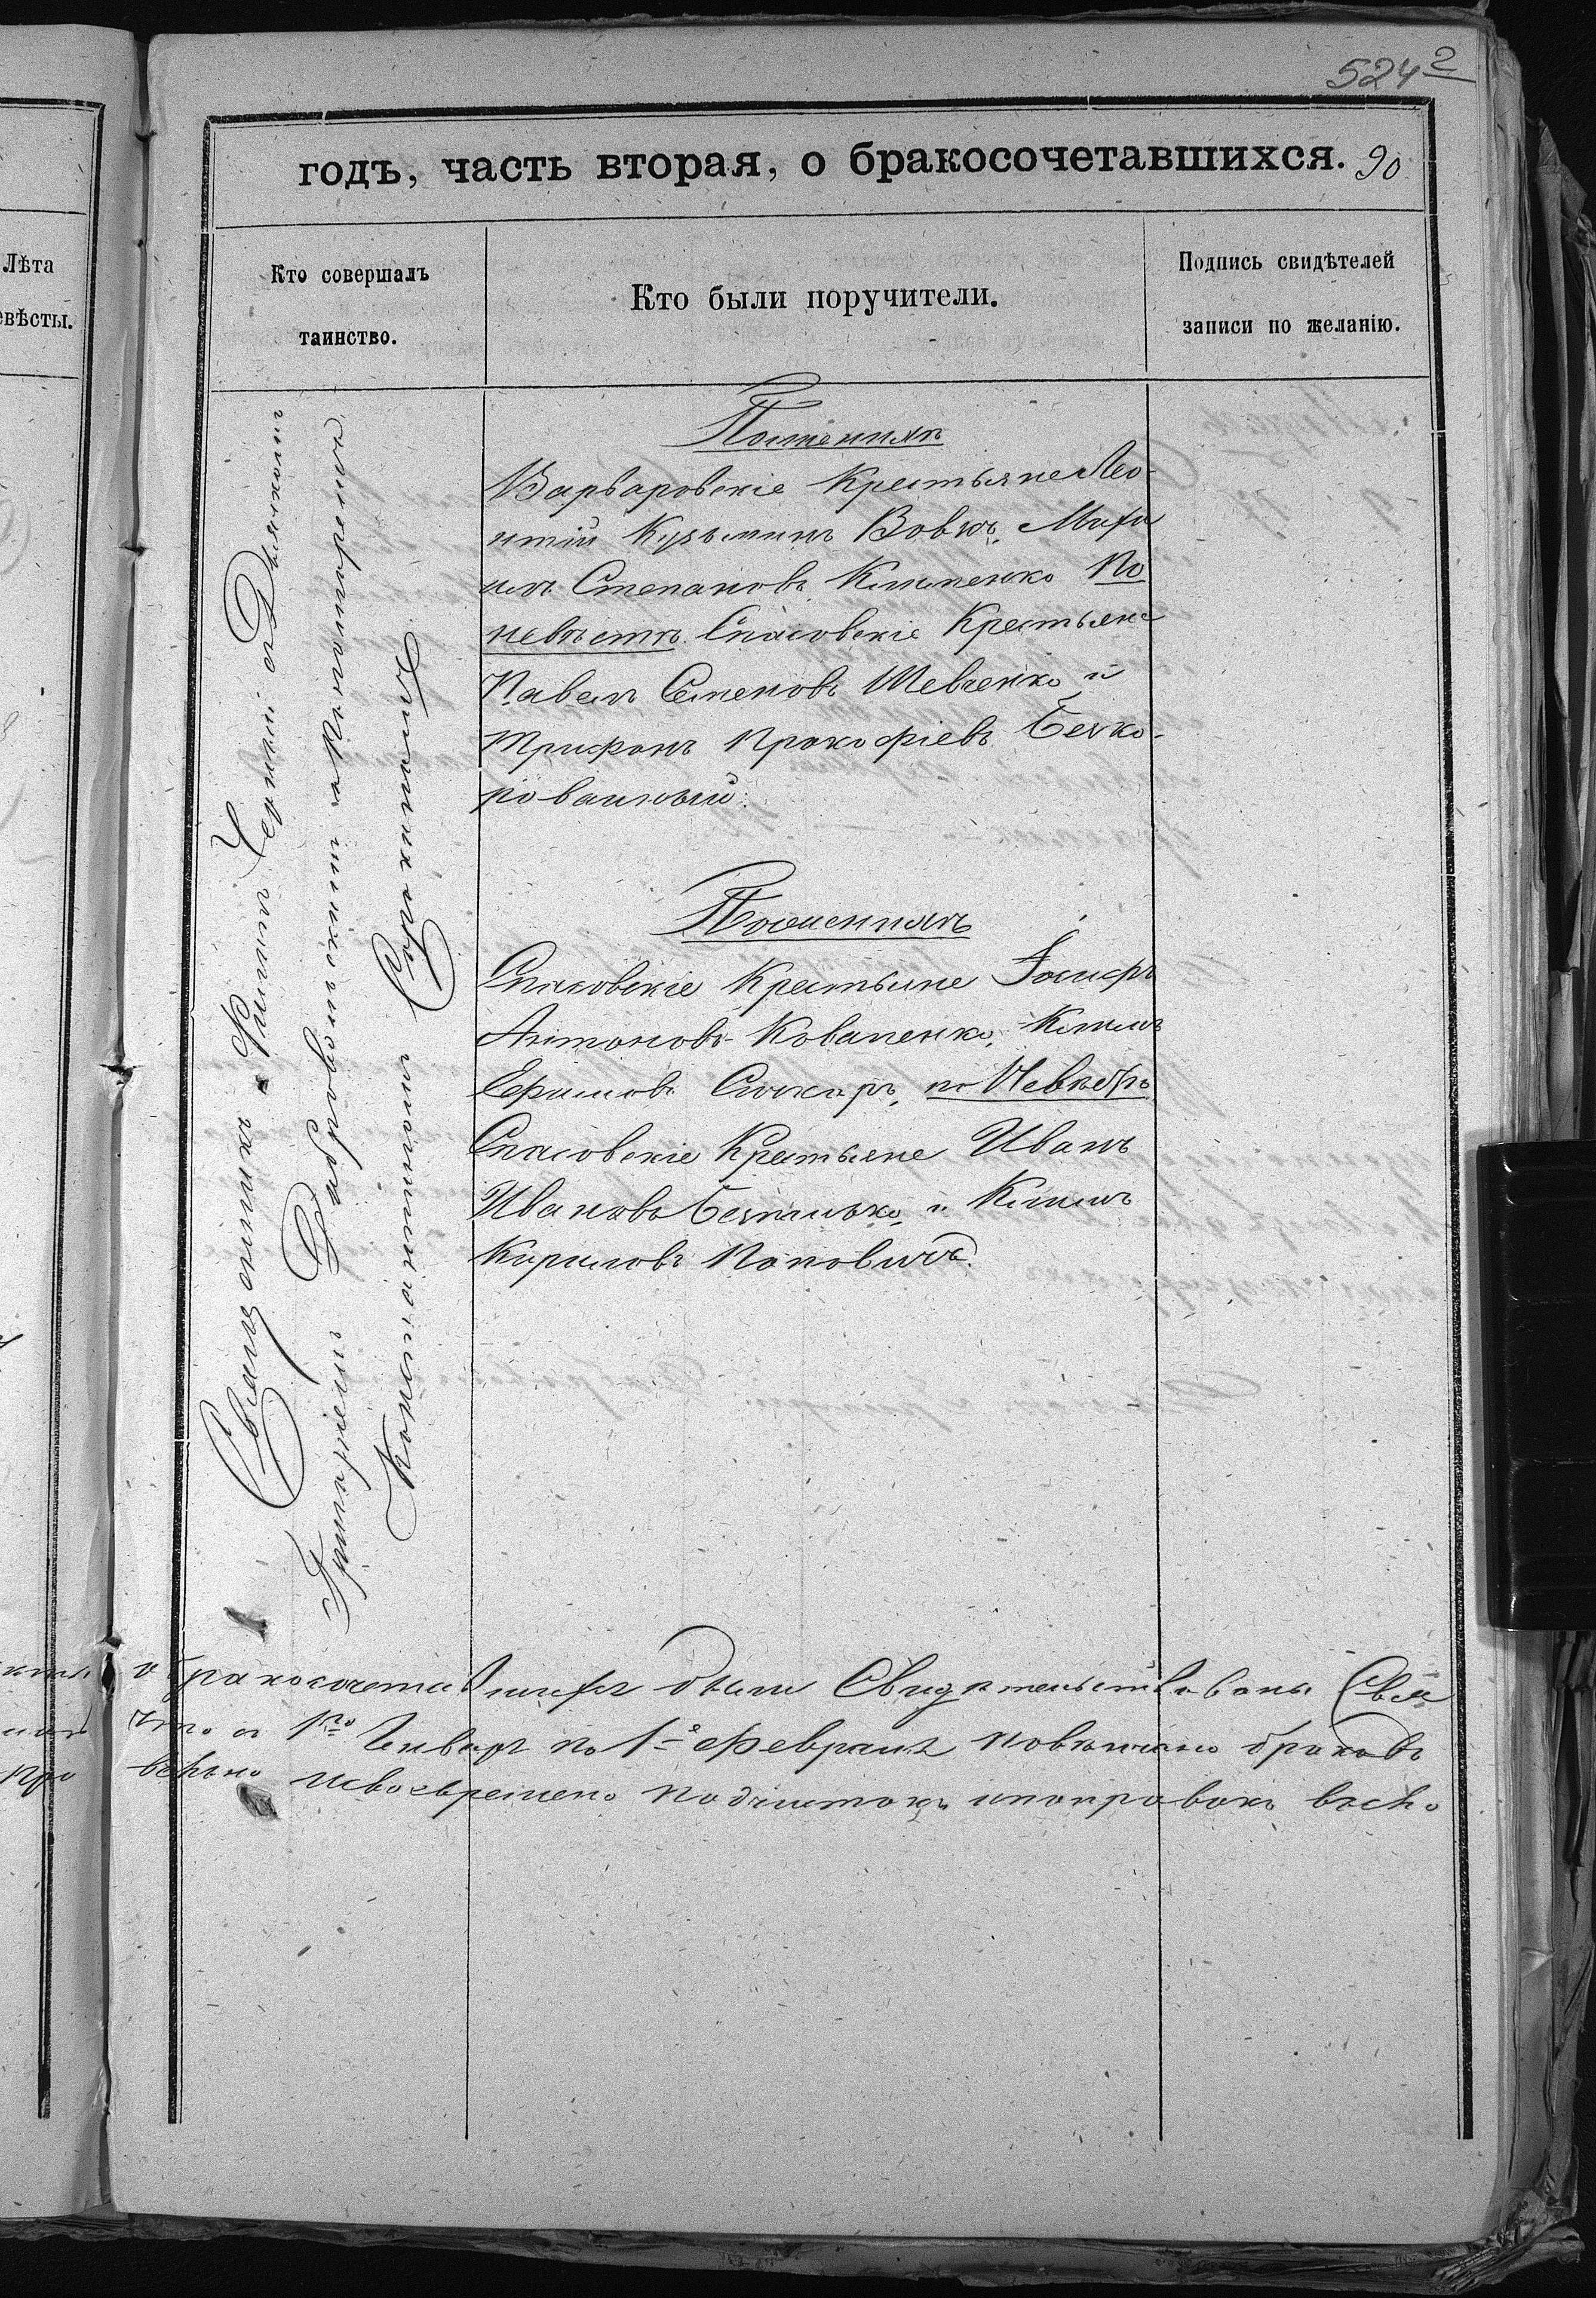 524 2
годъ, часть вторая, о бракосочетавшихся. 90
Лѣта
евѣсты.
Кто совершалъ
таинство.
Кто были поручители.
Подпись свидѣтелей
записи по желанію.
Священникъ Филипъ Черный съ Дьякономъ
Григоріемъ Дабровольскимъ и Псаломщикомъ
Константиномъ Сорокинымъ
По женихѣ
Варваровскіе Крестьяне Лео-
нтій Кузьминъ Вовкъ, Миха
илъ Степановъ Клименко По
невѣстѣ Спасовскіе Крестьяне
Павелъ Семеновъ Шевченко и
Трифонъ Прокофіевъ Безко-
ровайный.
По женихѣ
Спасовскіе Крестьяне Іосифъ
Антоновъ Коваленко, Климъ
Ефимовъ, по Невѣстѣ
Спасовскіе Крестьяне Иванъ
Ивановъ и Климъ
Кириловъ Поповичъ.
о бракосочетавшихся были Свидѣтельствованы Свя
что съ 1го Января по 1е Февраля повѣнчано браковъ
вѣрно и своевремено подчистокъ и поправокъ